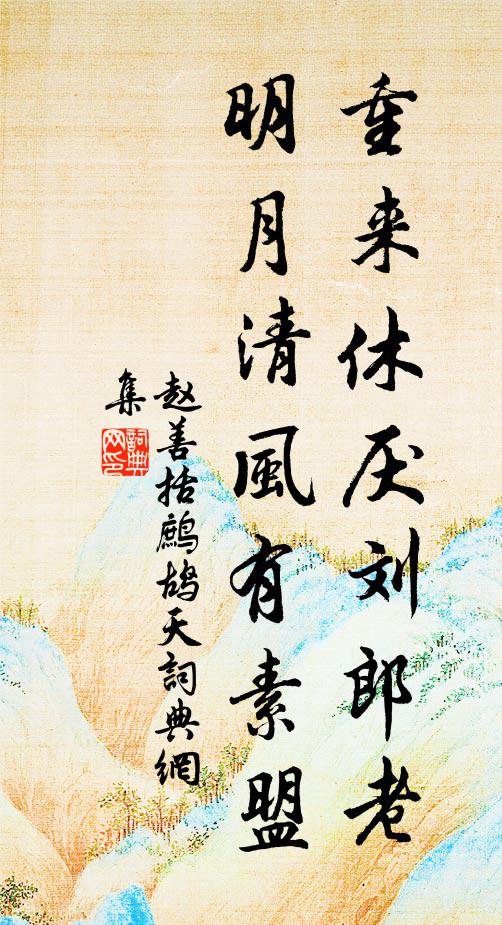 重来休厌刘郎老
明月清風有素盟
赵善括鷓鴣天詞典網
集
詞典
网印